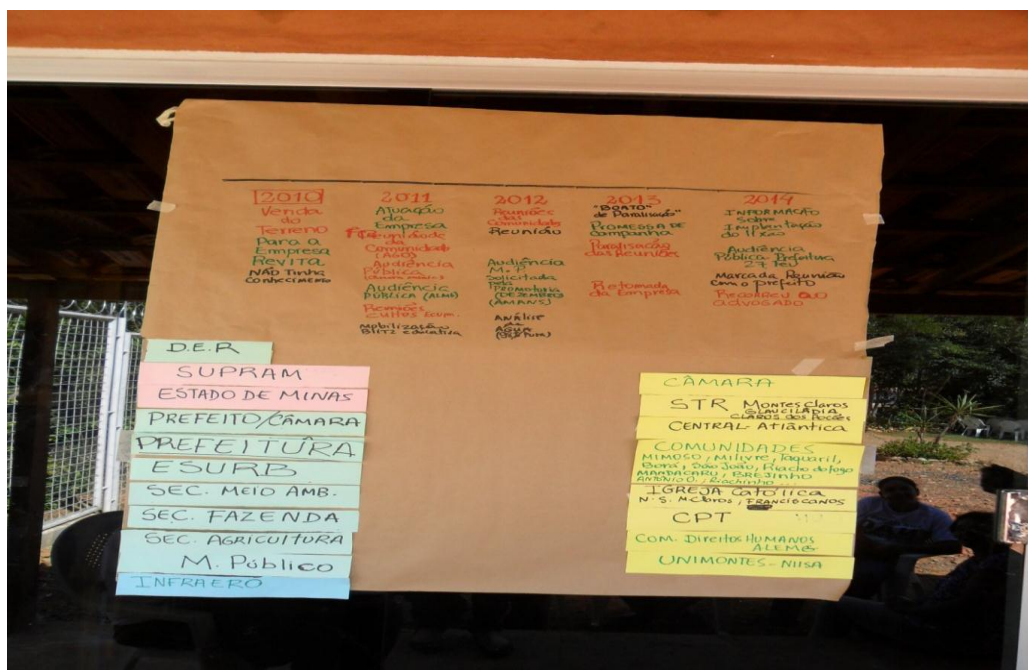 2010
Venda
do
Terreno
Para a
Empresa
Revita
NÃO Tinha
Conhecimento
2011
Atuação
da
Empresa
da
Comunidade
(AGO)
Audiência
Pública
Audiência
PÚBLICA (ALMG)
Reuniões
cultos Ecum.
mobilização
BLITZ educativa
2012
Reuniões
das
Comunidades
Reunião
Audiência
M.P.
Solicitada
pela
PROMOTORIA
(DEZEMBRO)
(AMANS)
ANÁLISE
da
AGUA
2013
"BOATO"
de Paralisação"
PROMESSA DE
Campanha
Paralisação
das Reuniões
Retomada
da Empresa
2014
INFORMAÇÃO
Sobre
Implantação
do lixão
Audiência
Pública Prefeitura
27 fev
Marcada Reunião
com o prefeito
Recorreu ao
advogado
D.E.R
SUPRAM
ESTADO DE MINAS
PREFEITO/CÂMARA
PREFEITURA
ESURB
SEC. MEIO AMB.
SEC. FAZENDA
SEC. AGRICULTURA
M. Público
INFRAERO
CÂMARA
STR Montes Claros
GLAUCILÂDIA
CLAROS DOS POÇÕES
CENTRAL-Atlântica
COMUNIDADES
MIMOSO, Milivre, Taquaril,
Borá, São João, Riacho do fogo
MANDACARU, BREJINHO
ANTÔNIO O., Riachinho...
IGREJA Católica
N.S. M.Claros, FRANCISCANOS
CPT
Com. Direitos HUMANOS
ALEMG
UNIMONTES-NIISA